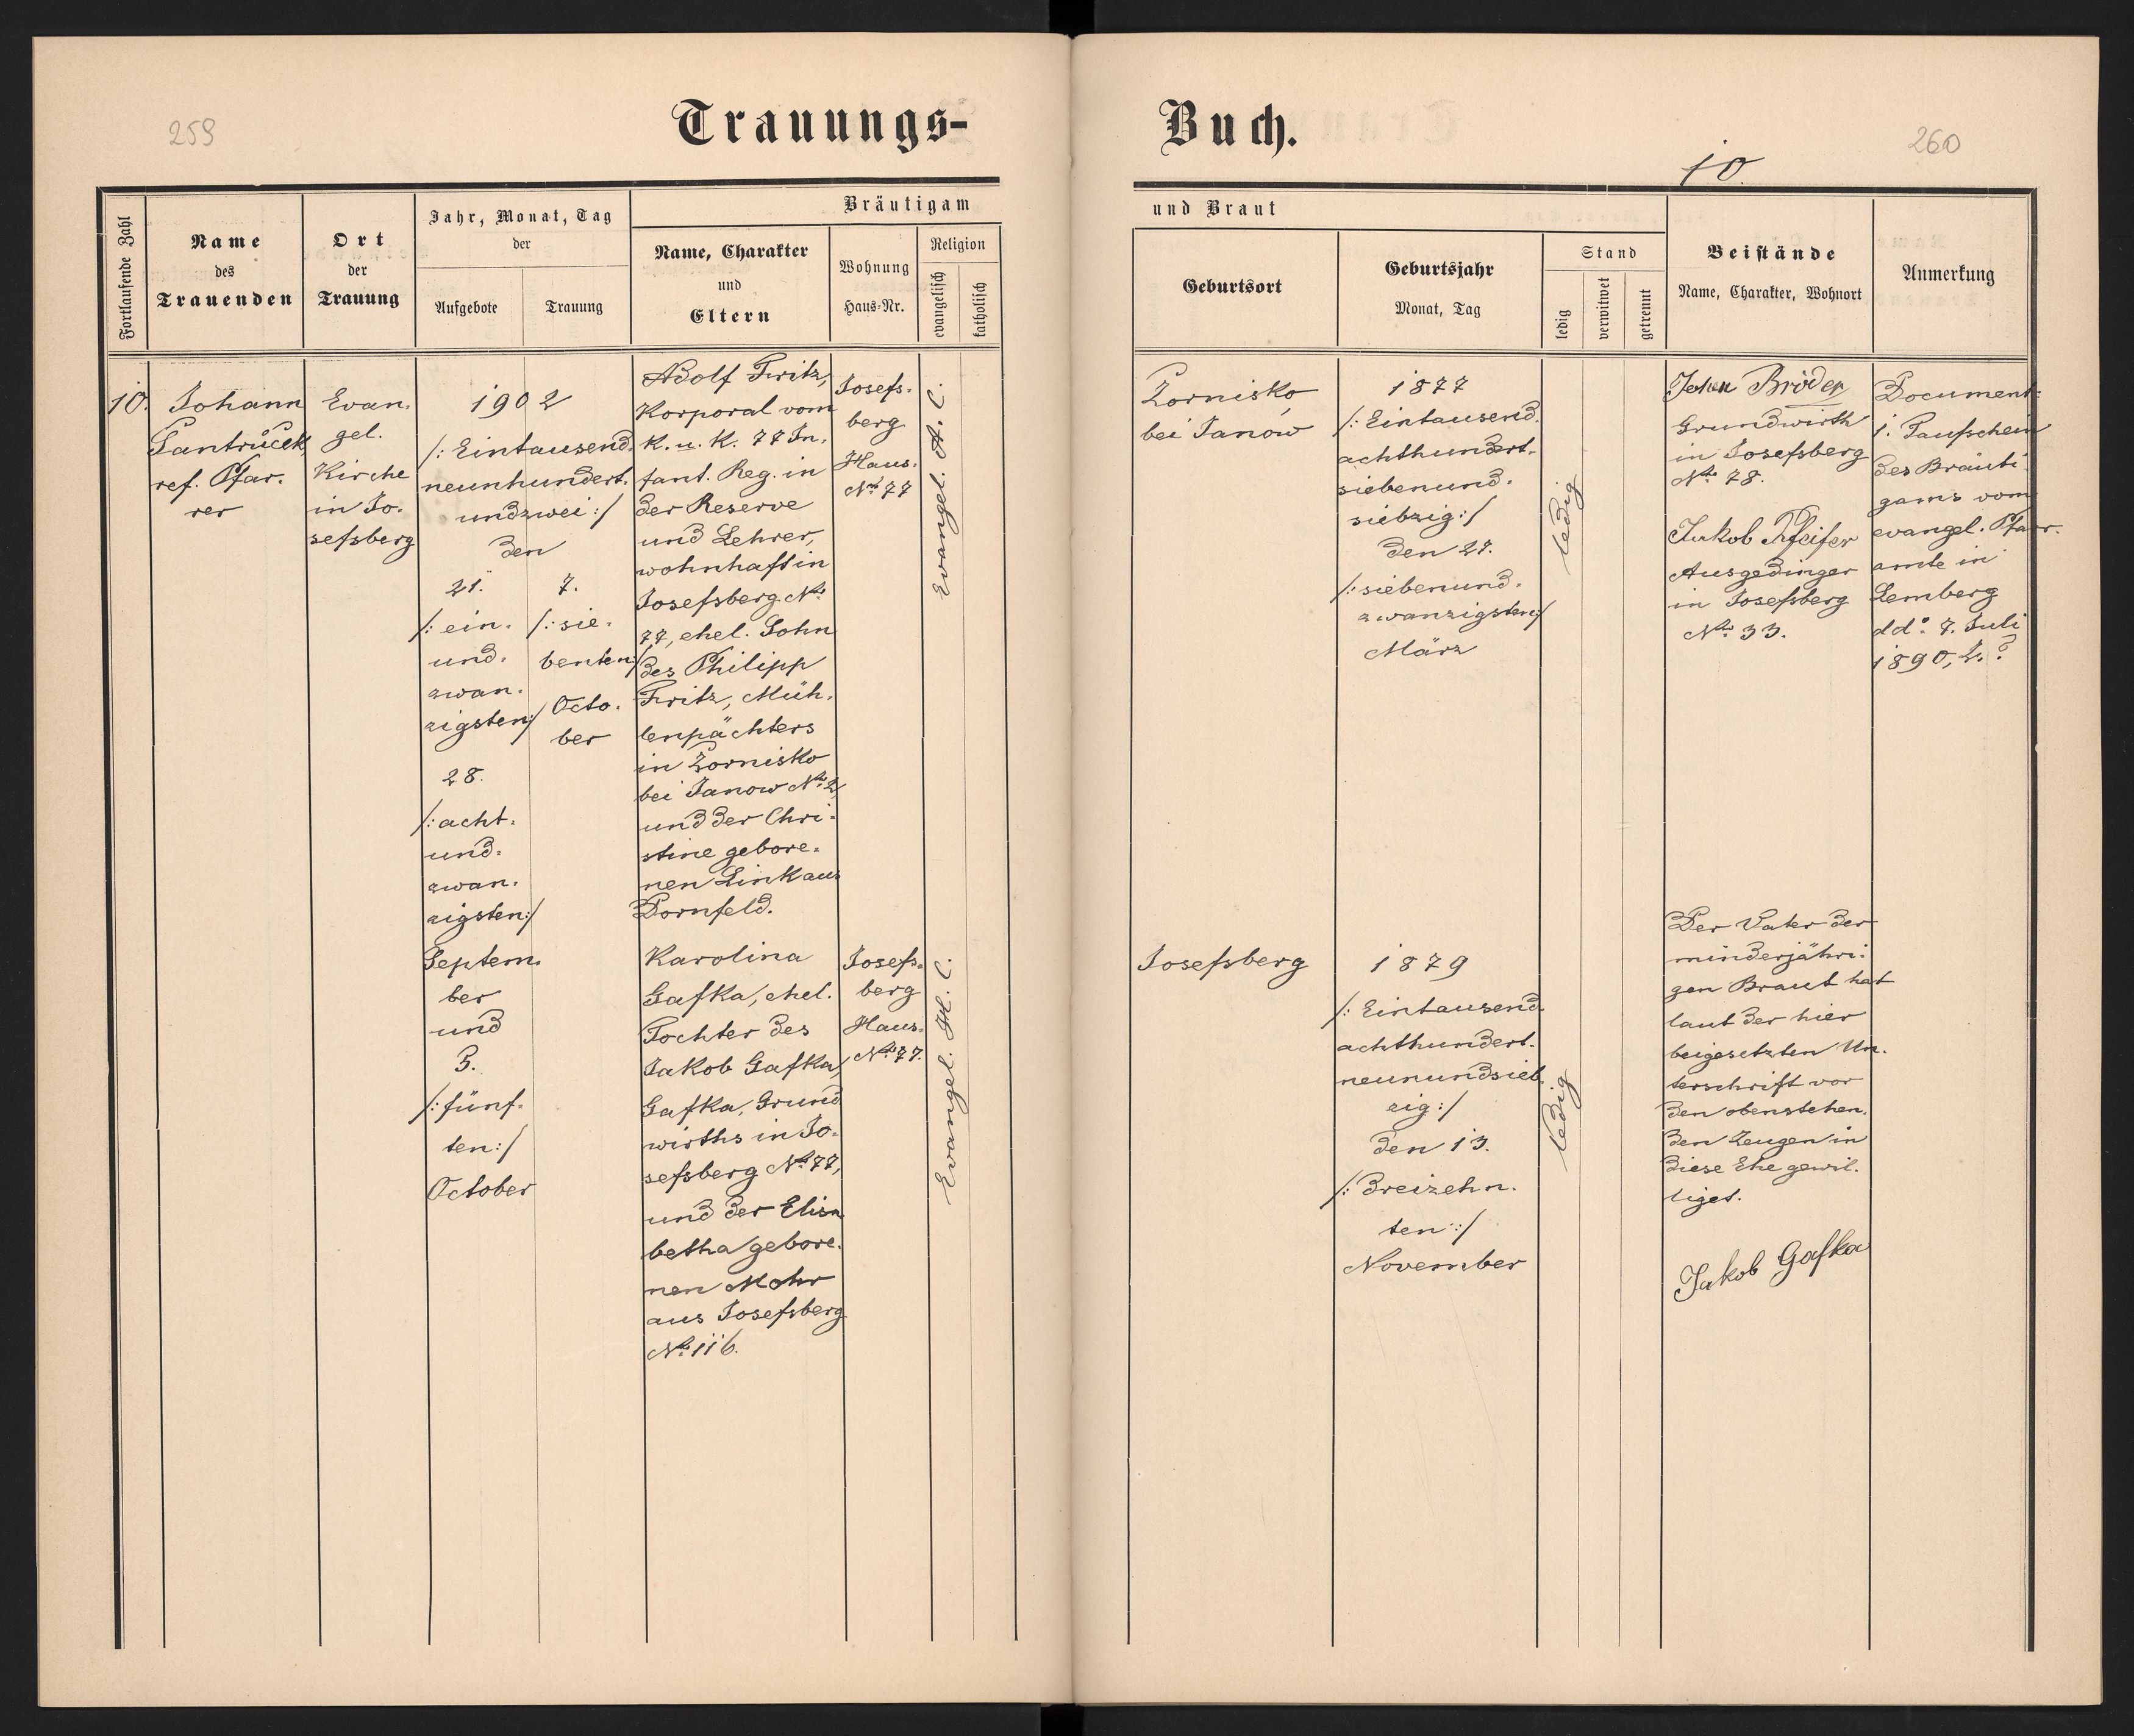 259
Trauungs-
Fortlaufende Zahl
Name
des
Trauenden
Ort
der
Trauung
Jahr, Monat, Tag
der
Aufgebote
Trauung
Bräutigam
Name, Charakter
und
Eltern
Wohnung
Haus-Nr.
Religion
evangelisch
katholisch
10.
Johann
Jantrůček
ref. Pfar-
rer
Evan-
gel.
Kirche
in Jo-
sefsberg
1902
/: Eintausend-
neunhundert-
undzwei :/
den
21.
/: ein-
und-
zwan-
zigsten :/
28.
/: acht-
und-
zwan-
zigsten :/
Septem-
ber
und
5.
/: fünf-
ten :/
October
7.
/: sie-
benten :/
Octo-
ber
Adolf Fritz,
Korporal vom
K. u. K. 77 In-
fant. Reg. in
der Reserve
und Lehrer,
wohnhaft in
Josefsberg No
77, ehel. Sohn
des Philipp
Fritz, Müh-
lenpächters
in Zornisko
bei Janow No 2,
und der Chri-
stine gebore-
nen Link aus
Dornfeld.
Josefs-
berg
Haus-
No 77
Evangel. A. C.
Karolina
Gafka, ehel.
Tochter des
Jakob Gafka,
Gafka, Grund
wirths in Jo-
sefsberg No 77,
und der Elisa
betha gebore-
nen Mohr
aus Josefsberg
No 116.
Josefs-
berg
Haus-
No 77.
Evangel. H. C.
Buch.
10.
260
und Braut
Geburtsort
Geburtsjahr
Monat, Tag
Stand
ledig
verwitwet
getrennt
Beistände
Name, Charakter, Wohnort
Anmerkung
Zornisko,
bei Janow
1877
/: Eintausend-
achthundert-
siebenund-
siebzig :/
den 27.
/: siebenund-
zwanzigsten :/
März
ledig
Johan Bröder
Grundwirth
in Josefsberg
No 78.
Jakob Pfeifer
Ausgedinger
in Josefsberg
No 33.
Document:
1. Taufschein
des Bräuti-
gams vom
evangel. Pfarr-
amte in
Lemberg
ddo. 7. Juli
1890, Z. ?
Josefsberg
1879
/: Eintausend-
achthundert-
neunundsieb-
zig :/
den 13.
/: dreizehn-
ten :/
November
ledig
Der Vater der
minderjähri-
gen Braut hat
laut der hier
beigesetzten Un-
terschrift vor
den obenstehen-
den Zeugen in
diese Ehe gewil-
liget.
Jakob Gafka